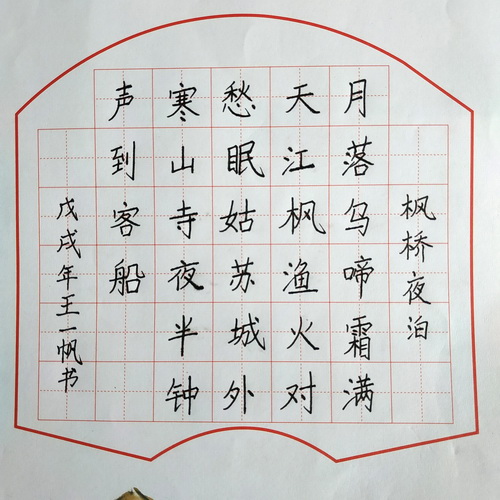 枫桥夜泊
月落乌啼霜满
天江枫渔火对
愁眠姑苏城外
寒山寺夜半钟
声到客船
戊戌年王一帆书